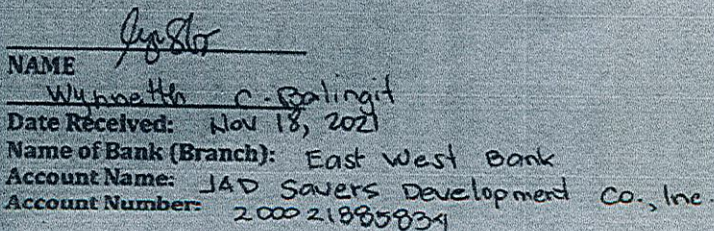 NAME
Wynneth C. Balingit
Date Received: Nov 18, 2021
Name of Bank (Branch): East West Bank
Account Name: JAD Savers Development Co., Inc.
Account Number: 200021885834